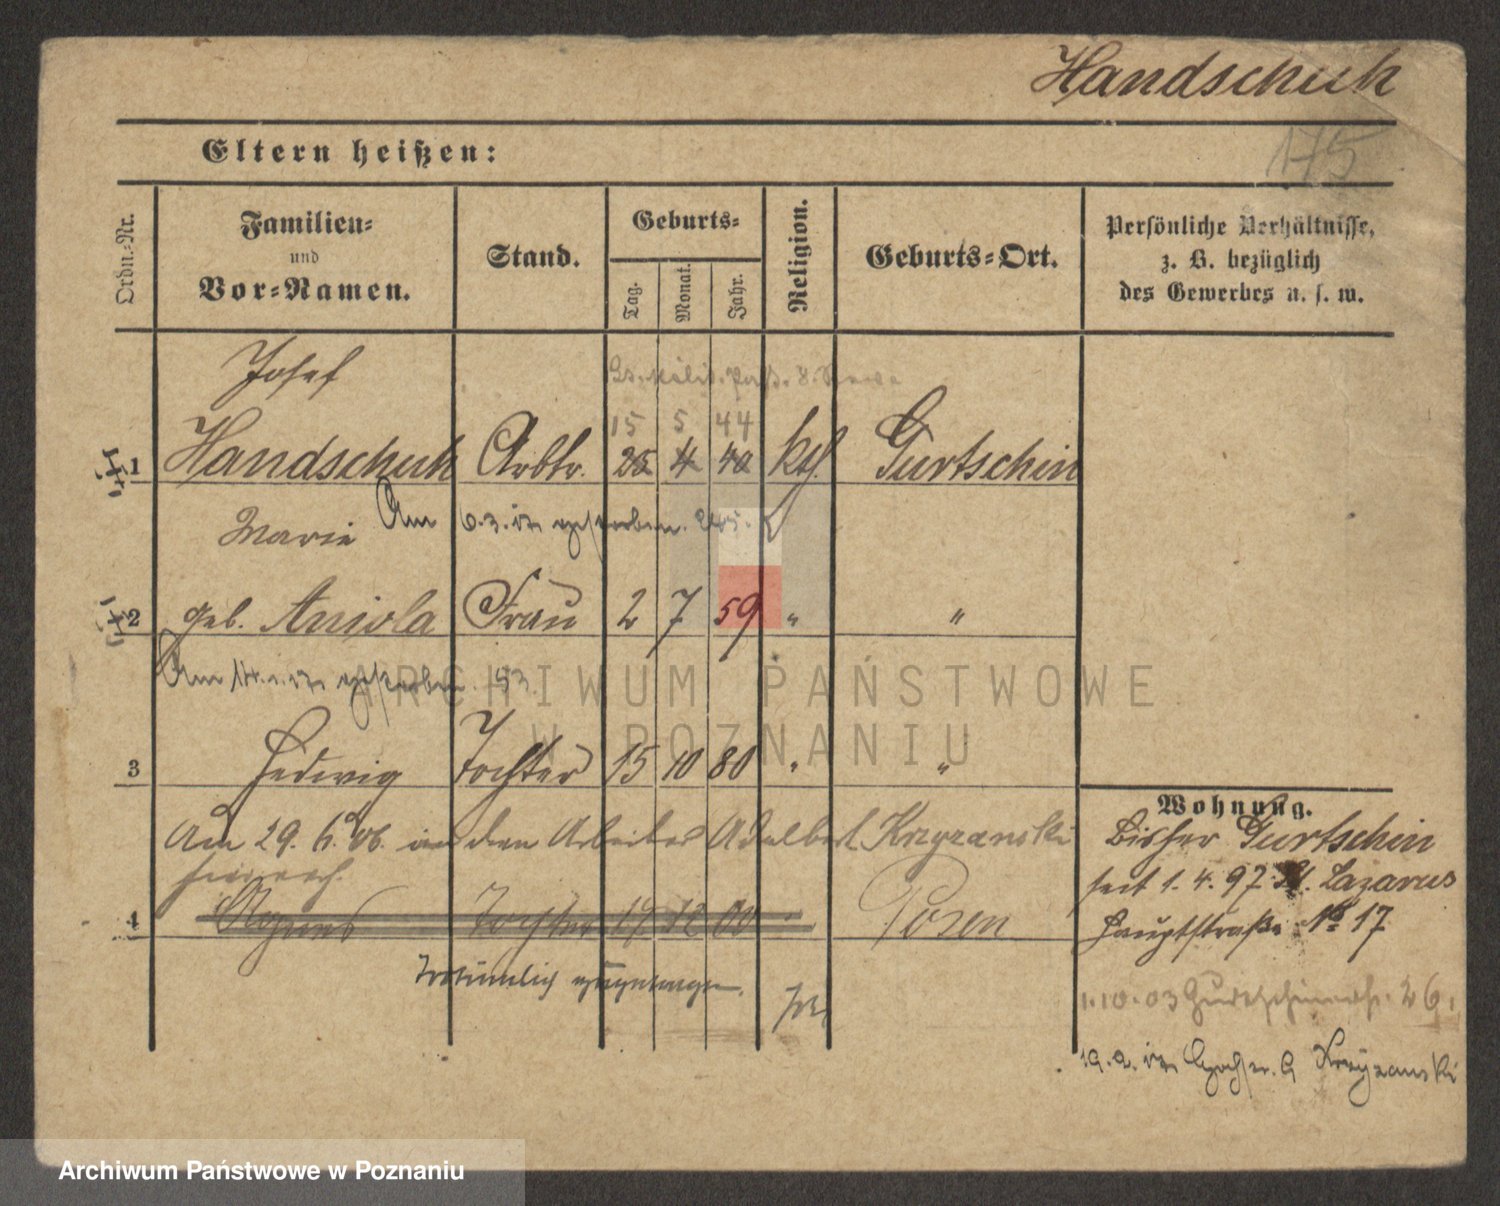 Handschuh
175
Eltern heißen:
Ordn.-Nr.
Familien-
und
Vor-Namen.
Stand.
Geburts-
Tag.
Monat.
Jahr.
Religion.
Geburts-Ort.
Persönliche Verhältnisse,
z. B. bezüglich
des Gewerbes u. s. w.
Josef
15 5 44
1 Handschuh Arbtr. 25 4 40 kth. Gurtschin
Marie Am 6.3.17 gestorben.
2 geb. Aniola Frau 2 7 59 " "
Am gestorben.
3 Hedwig Tochter 15 10 80 " "
Am 29. 6. 06. an den Arbeiter Adelbert Krzyzanski
4 Tochter 19 12 00 Posen
Irrtümlich eingetragen.
Wohnung.
Bisher Gurtschin
seit 1. 4. 97 St. Lazarus
Hauptstraße № 17
1.10.03 Gurtschinerstr. 26.
Krzyzanski
ARCHIWUM PAŃSTWOWE
W POZNANIU
Archiwum Państwowe w Poznaniu